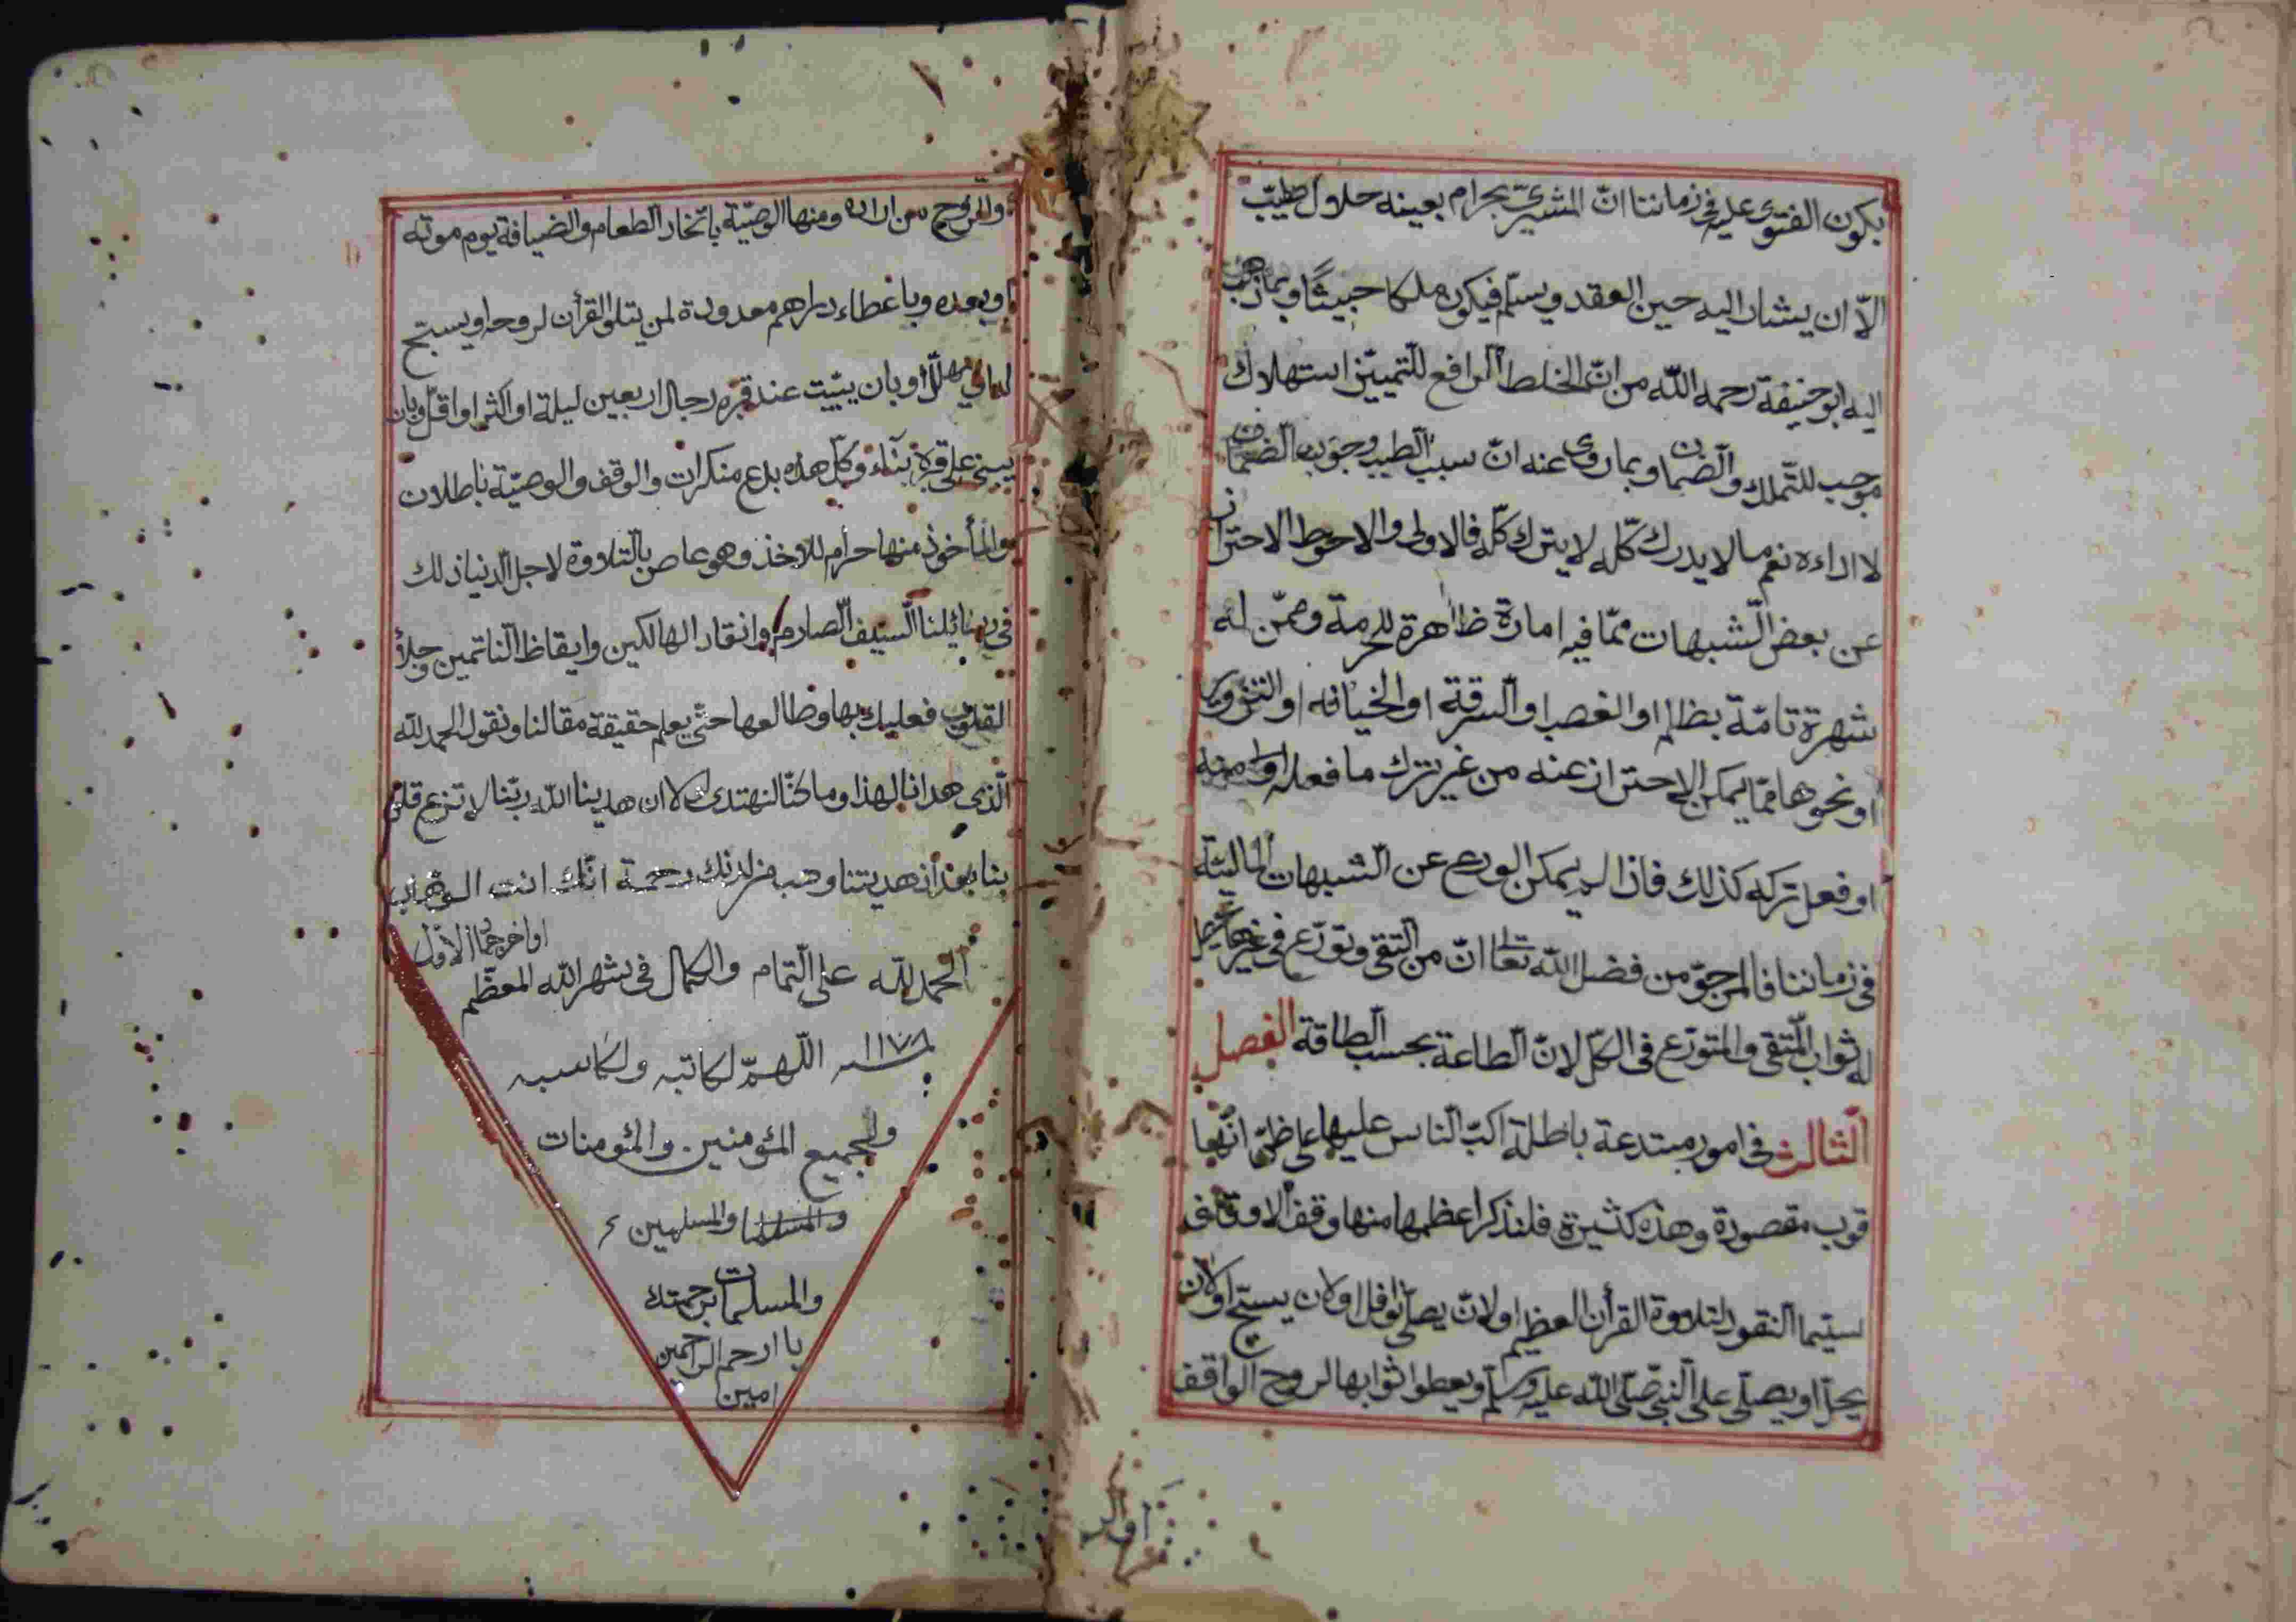 يكون الفتوى عليه فى زماننا انّ المشترىّ بحرام بعينه حلال طيّب
الاّ ان يشار اليه حين العقد ويسلّم فيكون ملكا خبيثًا وبما ذهب
اليه ابو حنيفة رحمه اللّه من انّ الخلط الرافع للتّمييز استهلاك
موجب للتّملك والضّمان وبما روى عنه انّ سبب الطيب وجوب الضّمان
لا اداءه نعم ما لا يدرك كلّه لا يترك كلّه فالاولى والاحوط الاحتراز
عن بعض الشّبهات ممّا فيه امارة ظاهرة للحرمة وممّن له
شهرة تامّة بظلم او الغصب او السّرقة او الخيانة او التّزوير
او نحوها ممّا يمكن الاحتراز عنه من غير ترك ما فعله اولى منه
او فعل تركه كذلك فاذا لم يمكن الورع عن الشّبهات الماليّة
فى زماننا فالمرجوّ من فضل اللّه تعا انّ من اتّقى وتورّع فى غيرها يحصل
له ثواب المتّقى والمتورّع فى الكلّ لانّ الطّاعة بحسب الطّاقة الفصل
الثّالث فى امور مبتدعة باطلة اكبّ النّاس عليها على ظنّ انّها
قرب مقصودة وهذه كثيرة فلنذكر اعظمها منها وقف الاوقاف
سيّما النّقود لتلاوة القرأن العظيم او لانّ يصلّى نوافل او لان يسبّح او لان
يحلّل او يصلّى على النّبىّ صلّى اللّه عليه وسلّم ويعطوا ثوابها لروح الواقف
او الر
والرّوح من اراده ومنها الوصيّة باتّخاذ الطّعام والضّيافة يوم موته
او بعده وباعطاء دراهم معدودة لمن يتلو القرأن لروحه او يسبّح
له او يهلّل او بان يبيت عند قبره رجال اربعين ليلة او اكثر او اقلّ وبان
يبنى على قبره بنّاء وكلّ هذه بدع منكرات والوقف والوصيّة باطلان
والمأخوذ منها حرام للاخذ وهو عاص بالتّلاوة لاجل الدّنيا ذلك
فى رسائلنا السّيف الصّارم وانقاذ الهالكين وايقاظ النّائمين وجلأ
القلوب فعليك بها وطالعها حتّى يعلم حقيقة مقالنا ونقول الحمد للّه
الّذى هدانا لهذا وما كنّا لنهتدى لولا ان هدينا اللّه ربّنا لا تزغ قلو
بنا بعد اذ هديتنا وهب من لدنك رحمة انّك انت الوهّاب
الحمد للّه على التّمام والكمال فى شهر اللّه المعظّم
اواخر جمّا الاوّل
سنه ١١٧٨ اللّهمّ لكاتبه ولكاسبه
ولجميع المؤمنين والمؤمنات
والمسلمين
والمسلمات برحمتك
يا ارحم الراحمين
امين